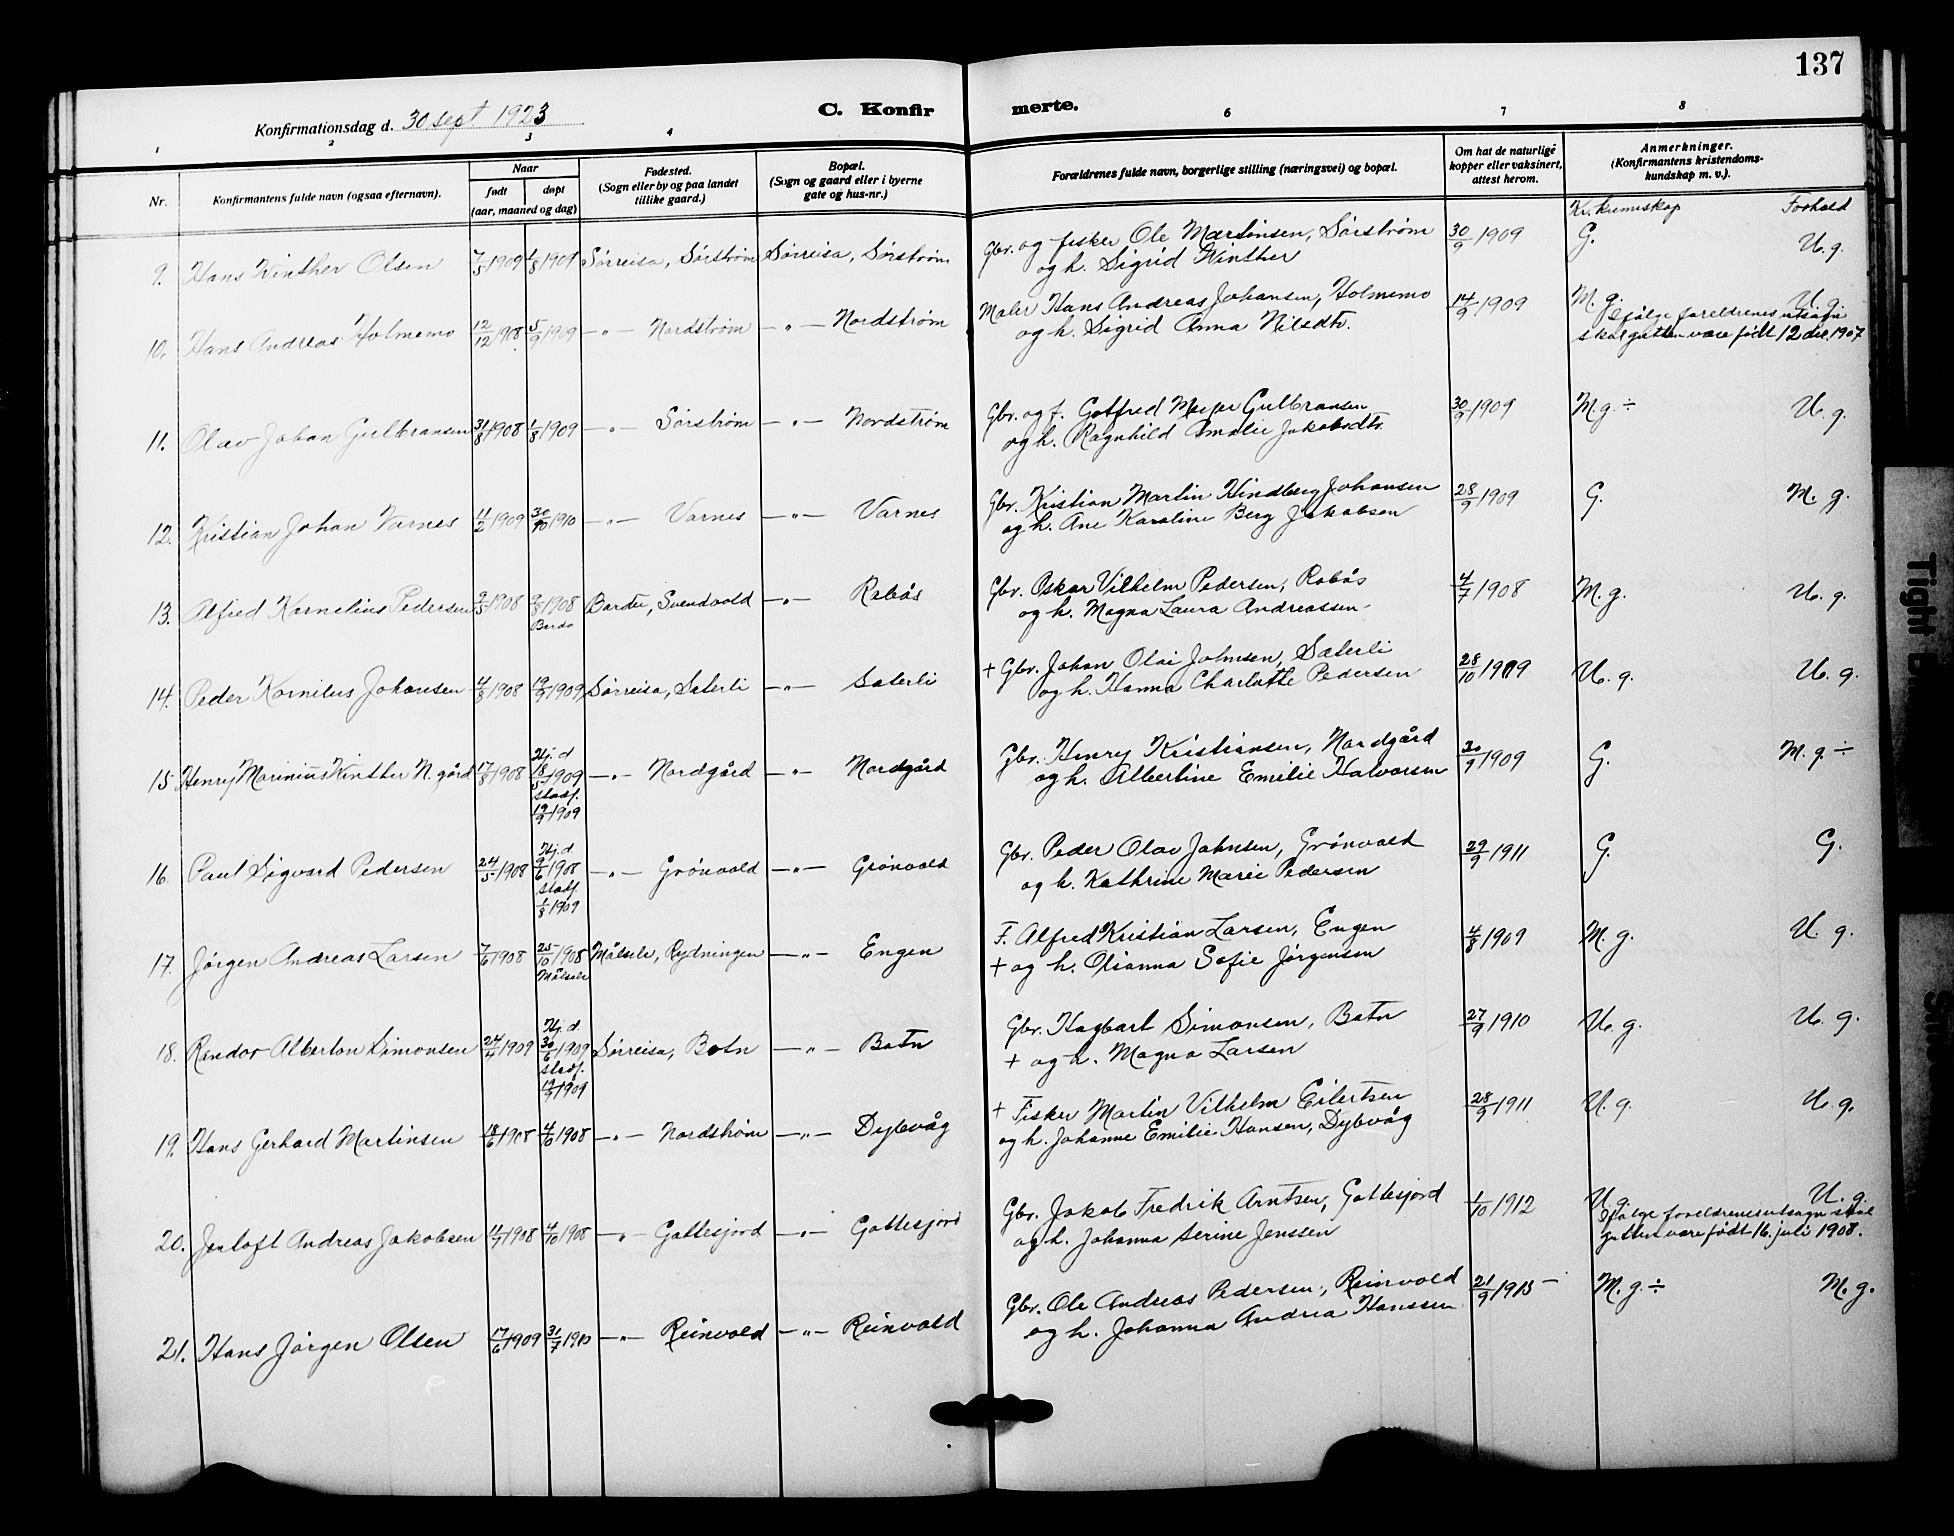 137
Konfirmationsdag d. 30 sept 1923
C. Konfir merte.
1 2 3 4 6 7 8
Nr.
Konfirmantens fulde navn (ogsaa efternavn).
Naar
født døpt
(aar, maaned og dag)
Fødested.
(Sogn eller by og paa landet
tillike gaard.)
Bopæl.
(Sogn og gaard eller i byerne
gate og hus-nr.)
Forældrenes fulde navn, borgerlige stilling (næringsvei) og bopæl.
Om hat de naturlige
kopper eller vaksinert,
attest herom.
Anmerkninger.
(Konfirmantens kristendoms-
kundskap m. v.).
Kr. kunnskap Forhold
9. Hans Winther Olsen 7/5 1909 1/8 1909 Sørreisa, Sørstrøm Sørreisa, Sørstrøm Gbr. og fisker Ole Martinsen, Sørstrøm 30/9 1909 G. U. g.
og h. Sigrid Winther
10. Hans Andreas Holmemo 12/12 1908 5/9 1909 -"- Nordstrøm -"- Nordstrøm Maler Hans Andreas Johansen, Holmemo 14/9 1909 M. g. U. g.
og h. Sigrid Anna Nilsdtr. Ifølge foreldrenes utsagn
skal gutten være født 12 des. 1907
11. Olav Johan Gulbransen 31/8 1908 1/8 1909 -"- Sørstrøm -"- Nordstrøm Gbr. og f. Gotfred Meyer Gulbransen 30/9 1909 M. g ÷ U. g.
og h. Ragnhild Amalie Jakobsdtr.
12. Kristian Johan Varnes 11/2 1909 30/10 1910 -"- Varnes -"- Varnes Gbr. Kristian Martin Hindberg Johansen 28/9 1909 G. M. g.
og h. Ane Karoline Berg Jakobsen
13. Alfred Kornelius Pedersen 2/5 1908 9/8 1908 Bardu, Svendvold -"- Rabås Gbr. Oskar Vilhelm Pedersen, Rabås 4/7 1908 M. g. U. g.
Bardo og h. Magna Laura Andreassen
14. Peder Kornilus Johansen 4/8 1908 19/9 1909 Sørreisa, Sæterli -"- Sæterli + Gbr. Johan Olai Johnsen, Sæterli 28/10 1909 U. g. U. g.
og h. Hanna Charlotte Pedersen
15 Henry Marinius Winther N. gård 17/8 1908 Hj. d 18/5 1909 stadf. 19/9 1909 -"- Nordgård -"- Nordgård Gbr. Henry Kristiansen, Nordgård 30/9 1909 G. M. g. ÷
og h. Albertine Emilie Halvorsen
16. Paul Sigvard Pedersen 24/5 1908 Hj. d. 9/6 1908 stadf. 1/8 1909 -"- Grønvold -"- Grønvold Gbr. Peder Olav Johnsen, Grønvold 29/9 1911 G. G.
og h. Kathrine Marie Pedersen
17. Jørgen Andreas Larsen 7/6 1908 25/10 1908 Målselv Målselv, Rydningen -"- Engen F. Alfred Kristian Larsen, Engen 4/8 1909 M. g. U. g.
+ og h. Olianna Sofie Jørgensen
18. Randor Alberton Simonsen 24/4 1909 Hj. d. 30/6 1909 stadf. 19/9 1909 Sørreisa, Botn -"- Botn Gbr. Hagbart Simonsen, Botn 27/9 1910 U. g. U. g.
+ og h. Magna Larsen
19. Hans Gerhard Martinsen 18/6 1908 4/10 1908 -"- Nordstrøm -"- Dybvåg + Fisker Martin Vilhelm Eilertsen 28/9 1911 U. g. U. g.
og h. Johanne Emilie Hansen, Dybvåg
20. Jentoft Andreas Jakobsen 11/7 1908 4/10 1908 -"- Gottesjord -"- Gottesjord Gbr. Jakob Fredrik Arntsen, Gottesjord 1/10 1912 U. g. U. g.
og h. Johanna Serine Jenssen Ifølge foreldrenes utsagn skal
gutten være født 16. juli 1908.
21. Hans Jørgen Olsen 17/6 1909 31/7 1910 -"- Reinvold -"- Reinvold Gbr. Ole Andreas Pedersen, Reinvold 21/9 1915 M. g. ÷ M. g.
og h. Johanna Andrea Hanssen
Tight B